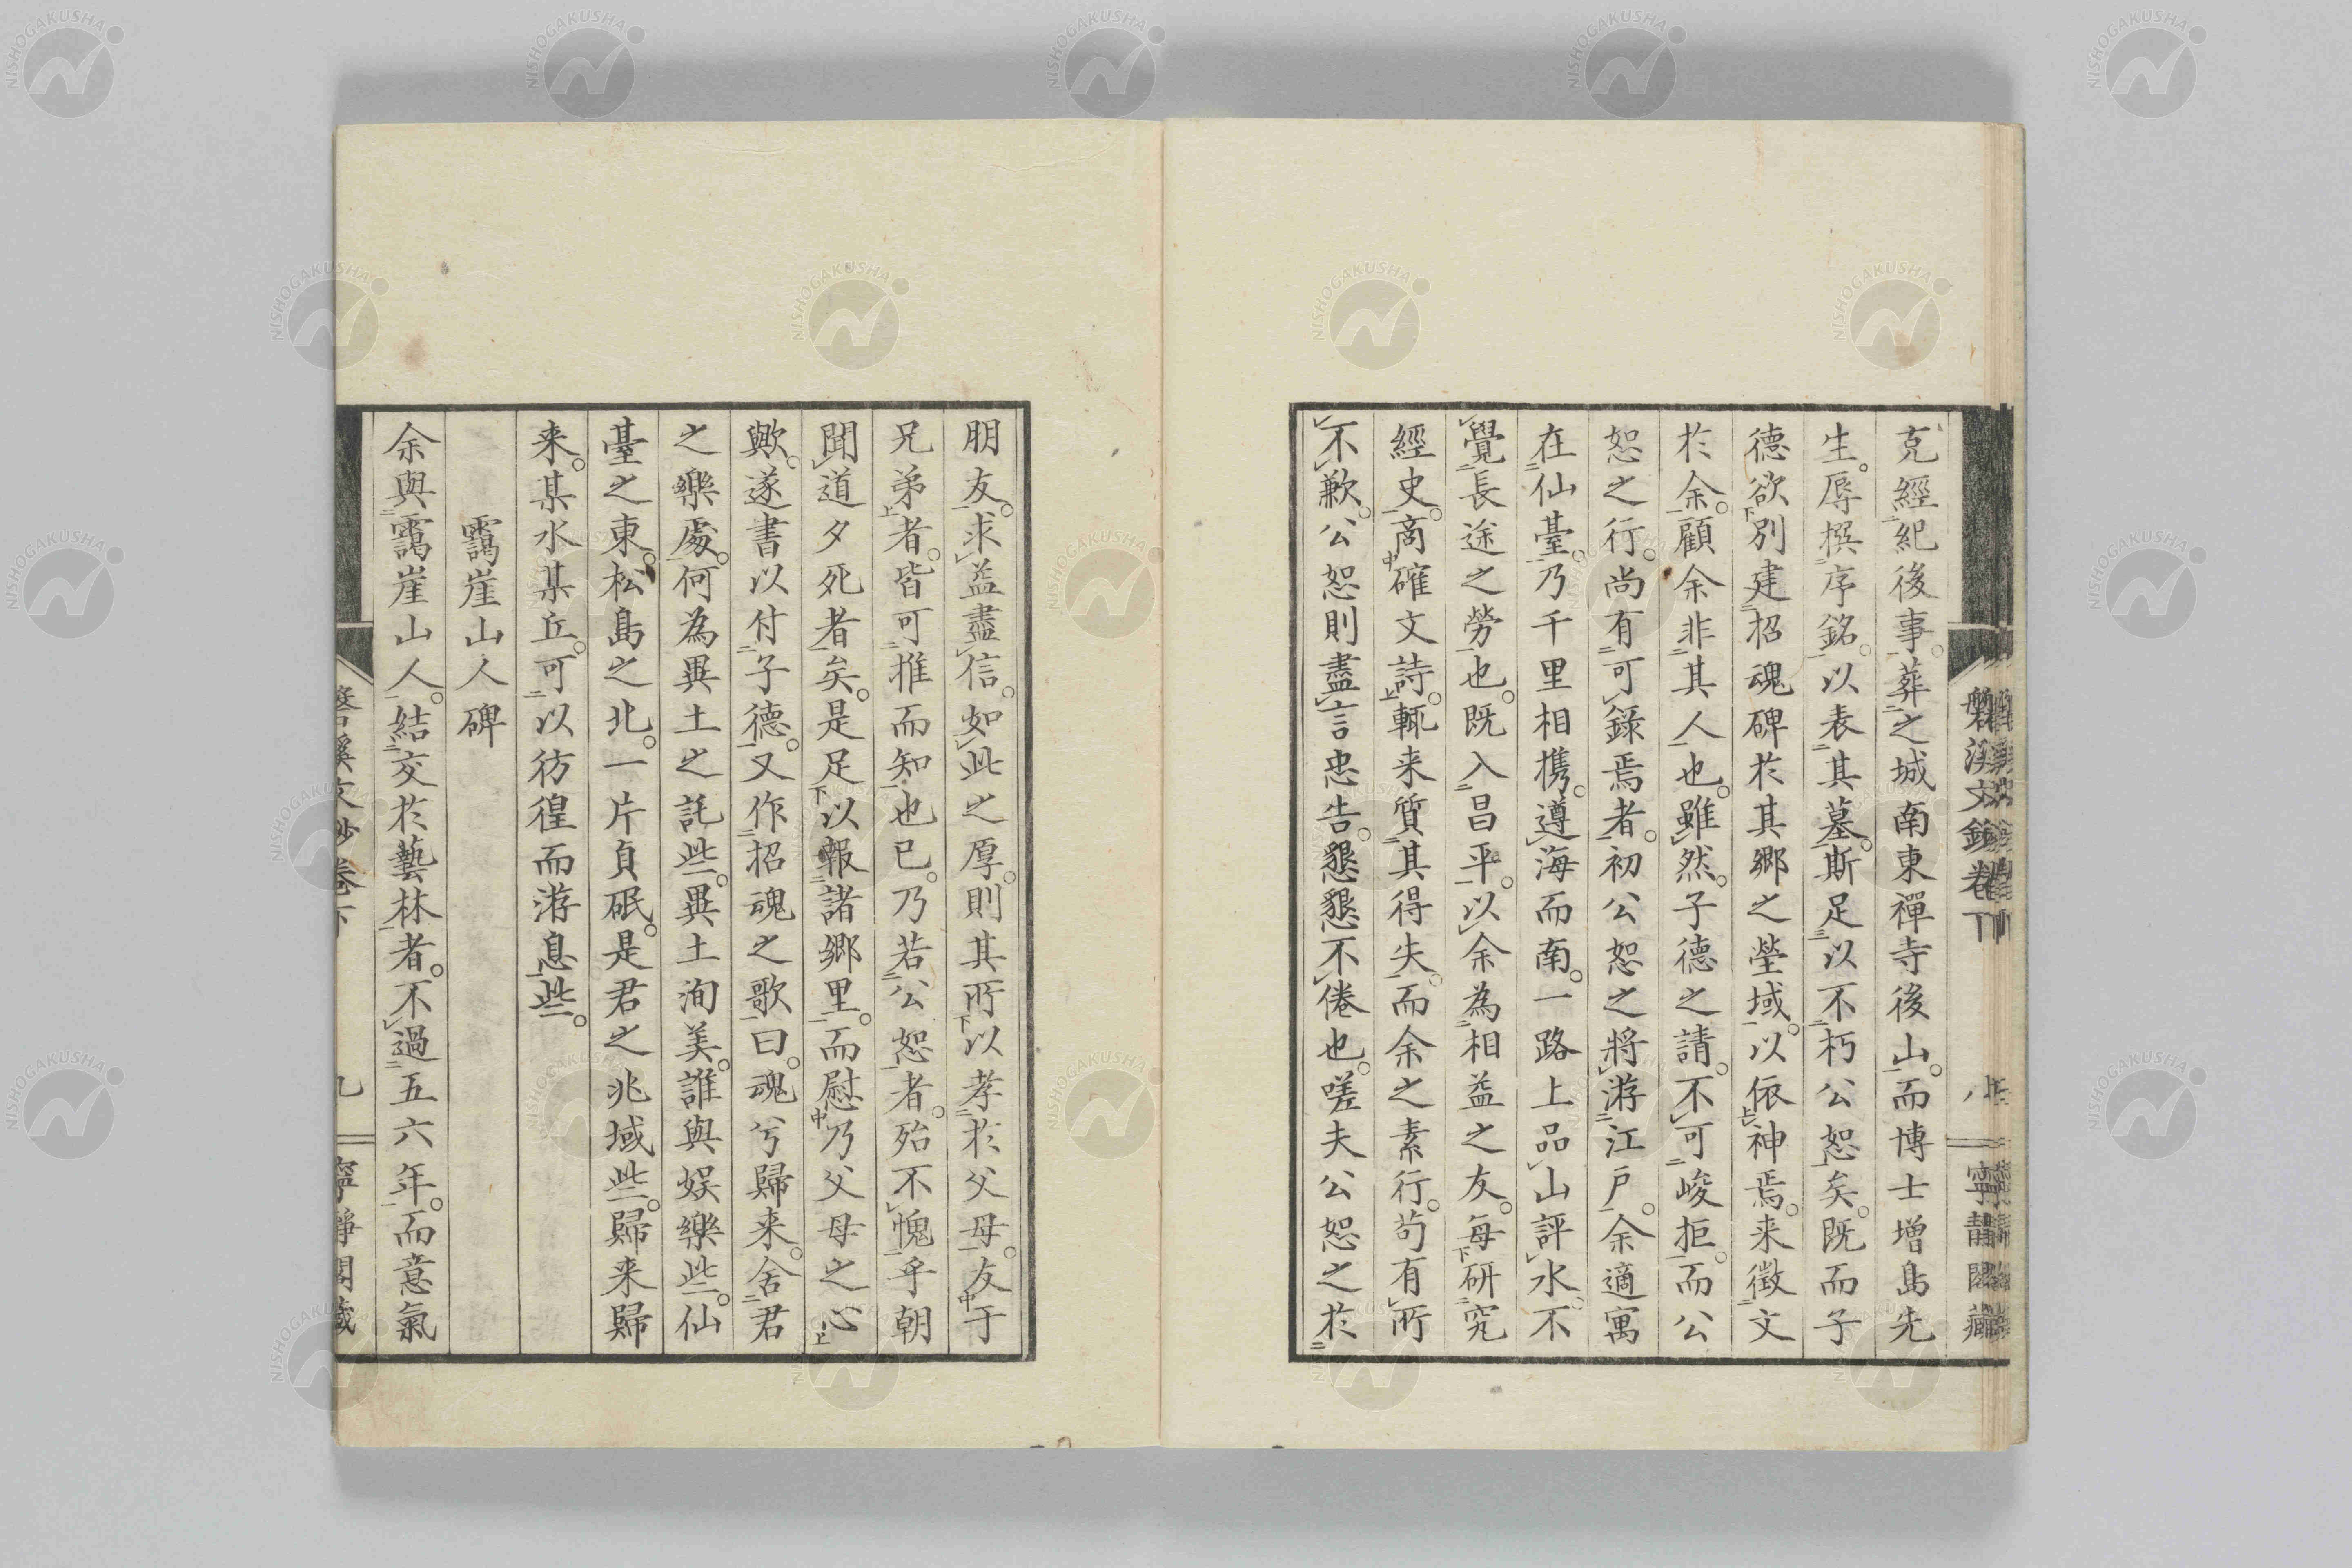 克經紀後事。葬之城南東禪寺後山。而博士增島先
生。辱撰序銘。以表其墓。斯足以不朽公恕矣。既而子
德欲別建招魂碑於其鄉之塋域。以依神焉。来徵文
於余。顧余非其人也。雖然。子德之請。不可峻拒。而公
恕之行。尚有可錄焉者。初公恕之將游江戶。余適寓
在仙臺。乃千里相携。遵海而南。一路上品山評水。不
覺長途之勞也。既入昌平。以余為相益之友。每研究
經史。商確文詩。輒来質其得失。而余之素行。苟有所
不歉。公恕則盡言忠告。懇懇不倦也。嗟夫公恕之於
磐溪文鈔卷下
八
寧靜閣藏
朋友。求益盡信。如此之厚。則其所以孝於父母。友于
兄弟者。皆可推而知也已。乃若公恕者。殆不愧乎朝
聞道夕死者矣。是足以報諸鄉里。而慰乃父母之心
歟。遂書以付子德。又作招魂之歌。曰。魂兮歸来。舍君
之樂處。何為異土之託些。異土洵美。誰與娛樂些。仙
臺之東。松島之北。一片貞砥。是君之兆域些。歸来歸
来。某水某丘。可以彷徨而游息些。
靄崖山人碑
余與靄崖山人。結交於藝林者。不過五六年。而意氣
磐溪文鈔卷下
九
寧靜閣藏
NISHOGAKUSHA